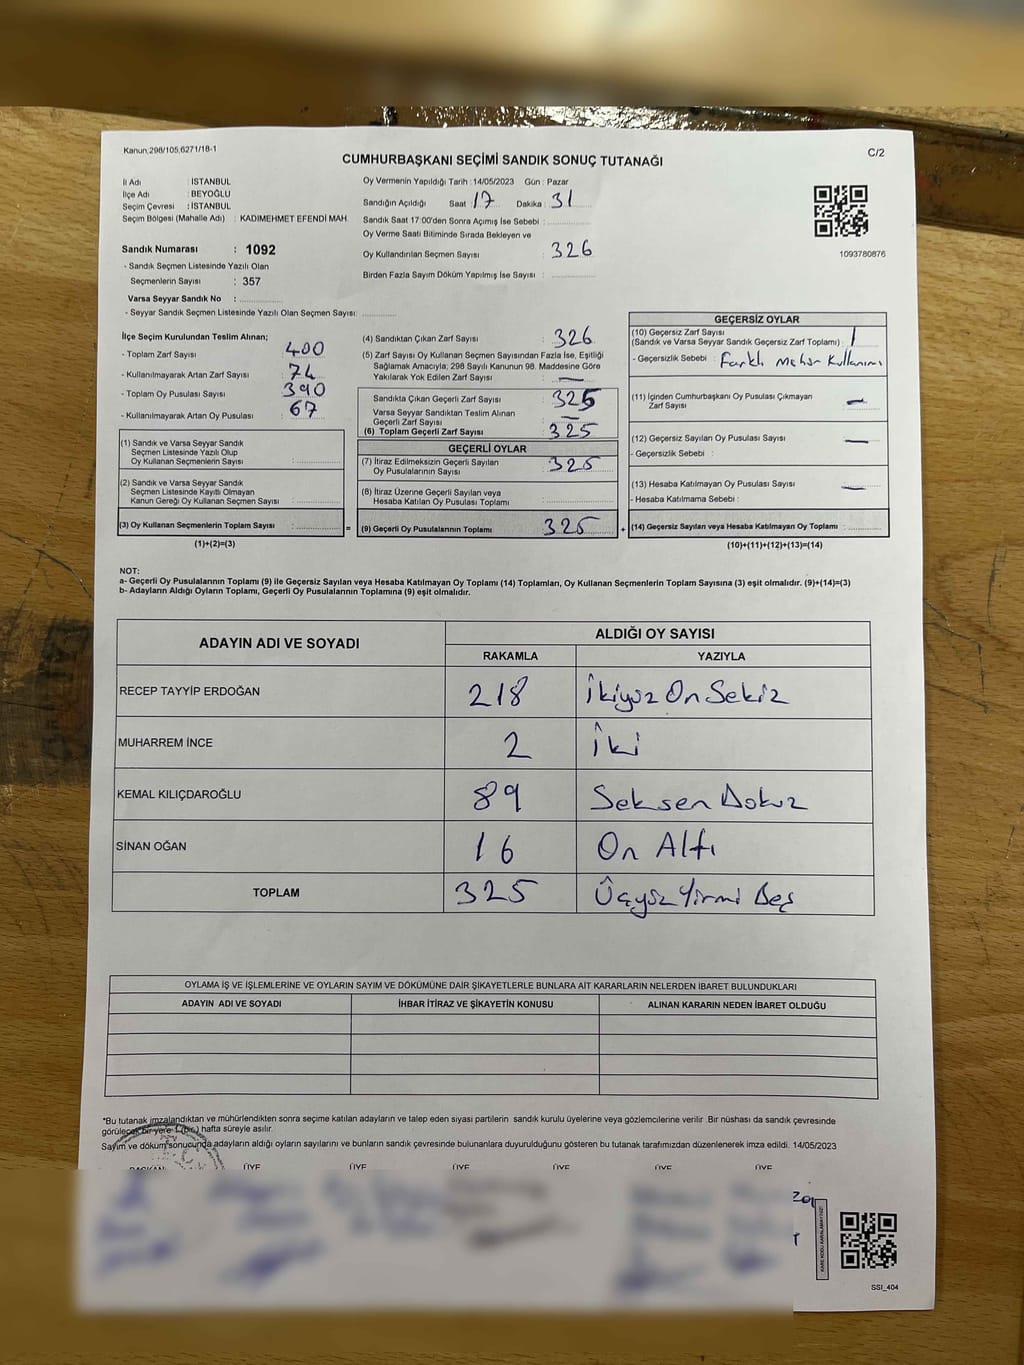 Kanun,298/105,6271/18-1
CUMHURBAŞKANI SEÇİMİ SANDIK SONUÇ TUTANAĞI
C/2
İl Adı : İSTANBUL
İlçe Adı : BEYOĞLU
Seçim Çevresi : İSTANBUL
Seçim Bölgesi (Mahalle Adı) : KADIMEHMET EFENDİ MAH.
Sandık Numarası : 1092
- Sandık Seçmen Listesinde Yazılı Olan
Seçmenlerin Sayısı : 357
Varsa Seyyar Sandık No :
- Seyyar Sandık Seçmen Listesinde Yazılı Olan Seçmen Sayısı:
Oy Vermenin Yapıldığı Tarih : 14/05/2023 Gün : Pazar
Sandığın Açıldığı Saat 17 Dakika : 31
Sandık Saat 17:00'den Sonra Açımış İse Sebebi :
Oy Verme Saati Bitiminde Sırada Bekleyen ve
Oy Kullandırılan Seçmen Sayısı : 326
Birden Fazla Sayım Döküm Yapılmış İse Sayısı :
1093780876
İlçe Seçim Kurulundan Teslim Alınan;
- Toplam Zarf Sayısı : 400
- Kullanılmayarak Artan Zarf Sayısı : 74
- Toplam Oy Pusulası Sayısı : 390
- Kullanılmayarak Artan Oy Pusulası : 67
(1) Sandık ve Varsa Seyyar Sandık
Seçmen Listesinde Yazılı Olup
Oy Kullanan Seçmenlerin Sayısı :
(2) Sandık ve Varsa Seyyar Sandık
Seçmen Listesinde Kayıtlı Olmayan
Kanun Gereği Oy Kullanan Seçmen Sayısı :
(3) Oy Kullanan Seçmenlerin Toplam Sayısı :
=
(1)+(2)=(3)
(4) Sandıktan Çıkan Zarf Sayısı : 326
(5) Zarf Sayısı Oy Kullanan Seçmen Sayısından Fazla İse, Eşitliği
Sağlamak Amacıyla; 298 Sayılı Kanunun 98. Maddesine Göre
Yakılarak Yok Edilen Zarf Sayısı : —
Sandıkta Çıkan Geçerli Zarf Sayısı : 325
Varsa Seyyar Sandıktan Teslim Alınan
Geçerli Zarf Sayısı : —
(6) Toplam Geçerli Zarf Sayısı : 325
GEÇERLİ OYLAR
(7) İtiraz Edilmeksizin Geçerli Sayılan
Oy Pusulalarının Sayısı : 325
(8) İtiraz Üzerine Geçerli Sayılan veya
Hesaba Katılan Oy Pusulası Toplamı :
(9) Geçerli Oy Pusulalarının Toplamı : 325
+
GEÇERSİZ OYLAR
(10) Geçersiz Zarf Sayısı
(Sandık ve Varsa Seyyar Sandık Geçersiz Zarf Toplamı) : 1
- Geçersizlik Sebebi : Farklı Mühür Kullanımı
(11) İçinden Cumhurbaşkanı Oy Pusulası Çıkmayan
Zarf Sayısı : —
(12) Geçersiz Sayılan Oy Pusulası Sayısı : —
- Geçersizlik Sebebi :
(13) Hesaba Katılmayan Oy Pusulası Sayısı : —
- Hesaba Katılmama Sebebi :
(14) Geçersiz Sayılan veya Hesaba Katılmayan Oy Toplamı :
(10)+(11)+(12)+(13)=(14)
NOT:
a- Geçerli Oy Pusulalarının Toplamı (9) ile Geçersiz Sayılan veya Hesaba Katılmayan Oy Toplamı (14) Toplamları, Oy Kullanan Seçmenlerin Toplam Sayısına (3) eşit olmalıdır. (9)+(14)=(3)
b- Adayların Aldığı Oyların Toplamı, Geçerli Oy Pusulalarının Toplamına (9) eşit olmalıdır.
ADAYIN ADI VE SOYADI
ALDIĞI OY SAYISI
RAKAMLA YAZIYLA
RECEP TAYYİP ERDOĞAN 218 İkiyüz On Sekiz
MUHARREM İNCE 2 İki
KEMAL KILIÇDAROĞLU 89 Seksen Dokuz
SİNAN OĞAN 16 On Altı
TOPLAM 325 Üçyüz Yirmi Beş
OYLAMA İŞ VE İŞLEMLERİNE VE OYLARIN SAYIM VE DÖKÜMÜNE DAİR ŞİKAYETLERLE BUNLARA AİT KARARLARIN NELERDEN İBARET BULUNDUKLARI
ADAYIN ADI VE SOYADI İHBAR İTİRAZ VE ŞİKAYETİN KONUSU ALINAN KARARIN NEDEN İBARET OLDUĞU
*Bu tutanak imzalandıktan ve mühürlendikten sonra seçime katılan adayların ve talep eden siyasi partilerin sandık kurulu üyelerine veya gözlemcilerine verilir. Bir nüshası da sandık çevresinde
görülecek bir yere 1 (bir) hafta süreyle asılır.
Sayım ve döküm sonucunda adayların aldığı oyların sayılarını ve bunların sandık çevresinde bulunanlara duyurulduğunu gösteren bu tutanak tarafımızdan düzenlenerek imza edildi. 14/05/2023
BAŞKAN ÜYE ÜYE ÜYE ÜYE ÜYE ÜYE
SSI_404